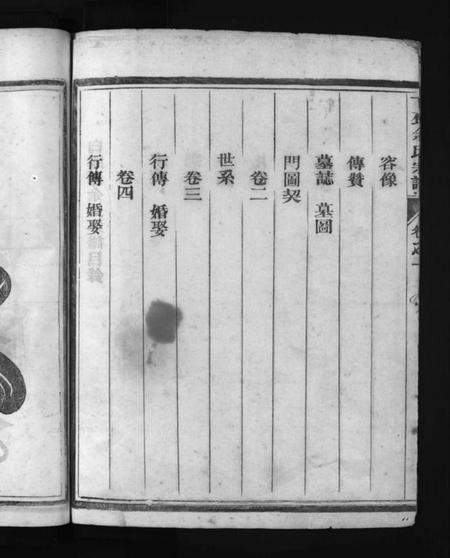 容像
傳贊
墓誌 墓圖
門圖契
卷二
世系
卷三
行傳 婚娶
卷四
行傳 婚娶
氏宗譜